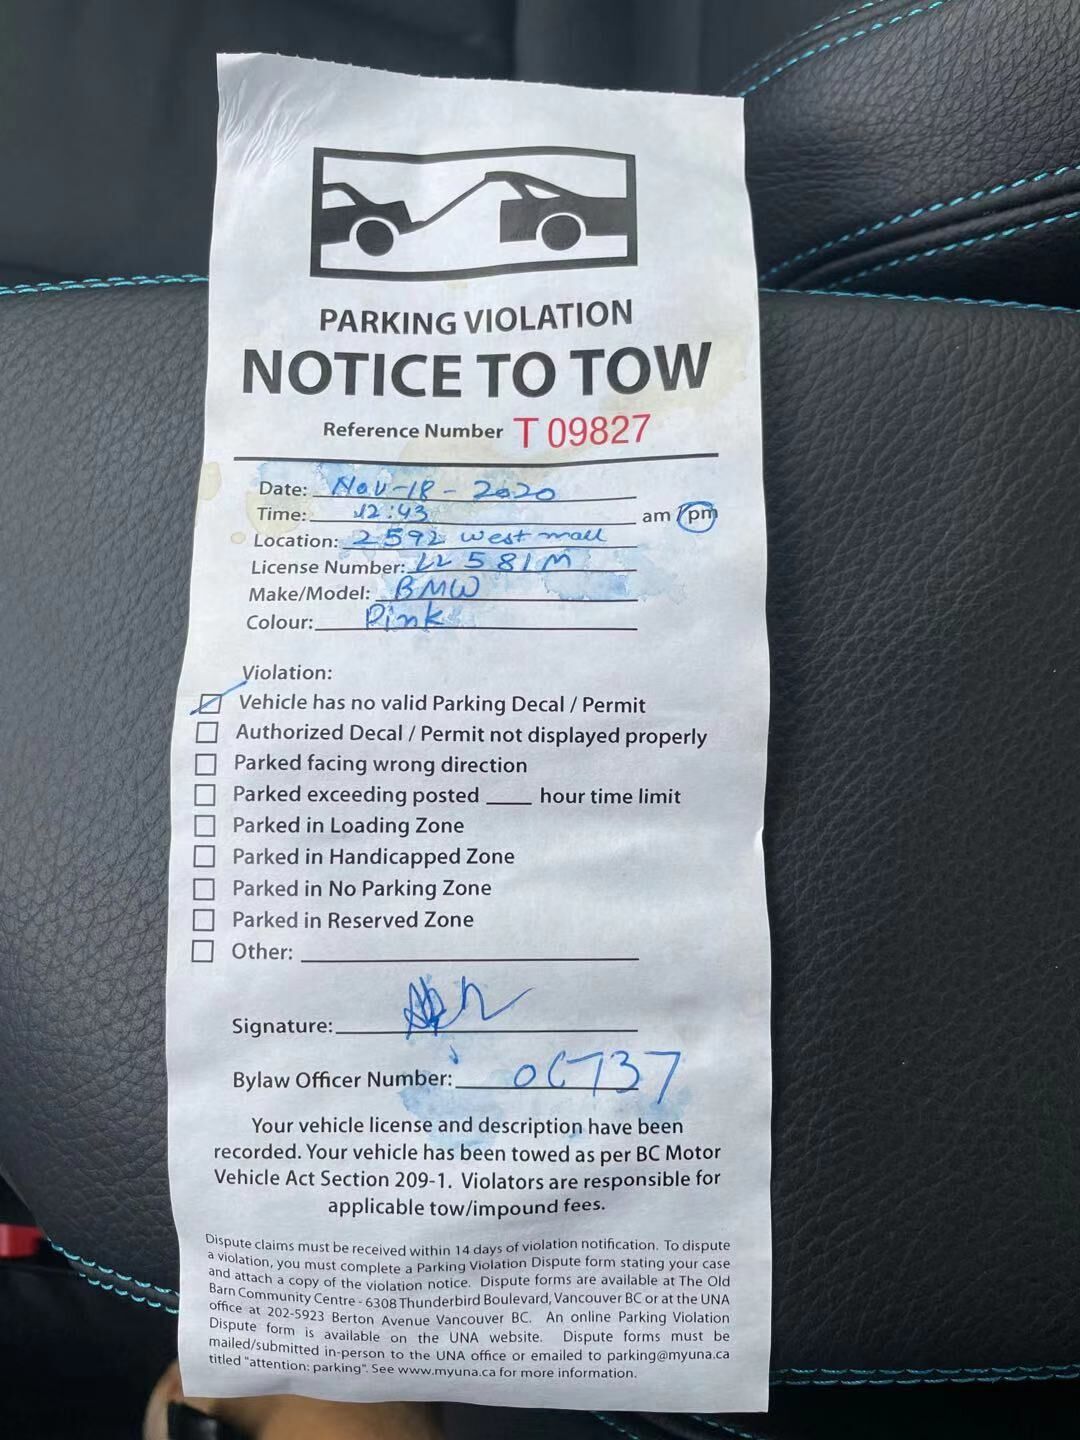 PARKING VIOLATION
NOTICE TO TOW
Reference Number T 09827
Date: Nov-18-2020
Time: 12:43 am pm
Location: 2592 west mall
License Number: LL 581M
Make/Model: BMW
Colour: Pink
Violation:
Vehicle has no valid Parking Decal / Permit
Authorized Decal / Permit not displayed properly
Parked facing wrong direction
Parked exceeding posted ____ hour time limit
Parked in Loading Zone
Parked in Handicapped Zone
Parked in No Parking Zone
Parked in Reserved Zone
Other:
Signature:
Bylaw Officer Number: OC737
Your vehicle license and description have been
recorded. Your vehicle has been towed as per BC Motor
Vehicle Act Section 209-1. Violators are responsible for
applicable tow/impound fees.
Dispute claims must be received within 14 days of violation notification. To dispute
a violation, you must complete a Parking Violation Dispute form stating your case
and attach a copy of the violation notice. Dispute forms are available at The Old
Barn Community Centre - 6308 Thunderbird Boulevard, Vancouver BC or at the UNA
office at 202-5923 Berton Avenue Vancouver BC. An online Parking Violation
Dispute form is available on the UNA website. Dispute forms must be
mailed/submitted in-person to the UNA office or emailed to parking@myuna.ca
titled "attention: parking". See www.myuna.ca for more information.